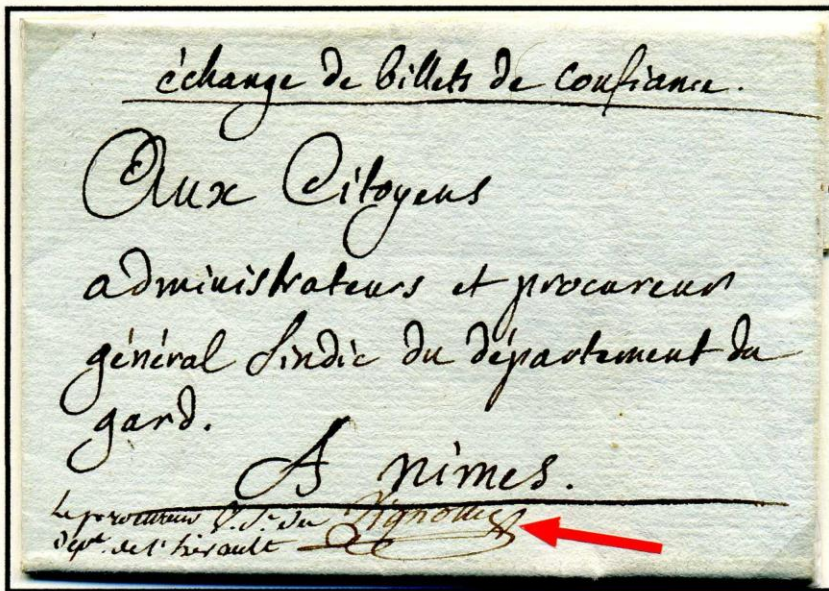 échange de billets de Confiance.
Aux Citoyens
administrateurs et procureur
général sindic du département du
gard.
A nimes.
Le procureur G. S. du Vignolle
dépt. de l'hérault